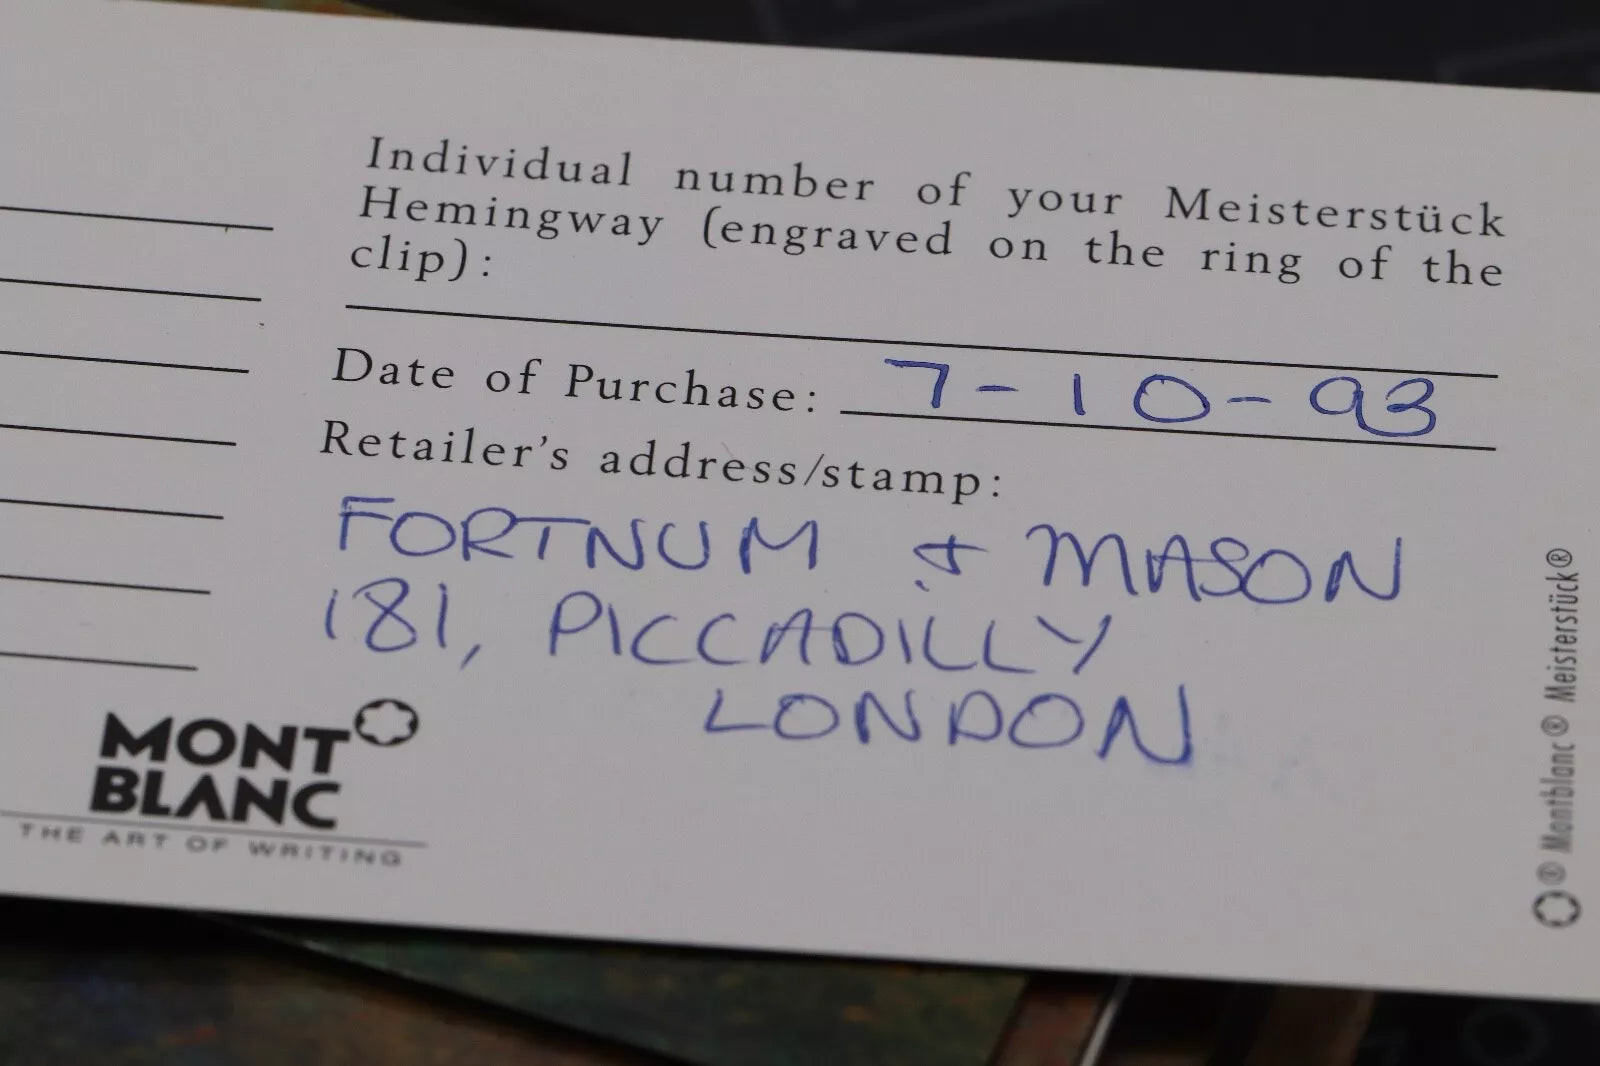 Individual number of your Meisterstück
Hemingway (engraved on the ring of the
clip):
Date of Purchase: 7-10-93
Retailer's address/stamp:
FORTNUM & MASON
181, PICCADILLY
LONDON
MONT
BLANC
THE ART OF WRITING
® Montblanc® Meisterstück®